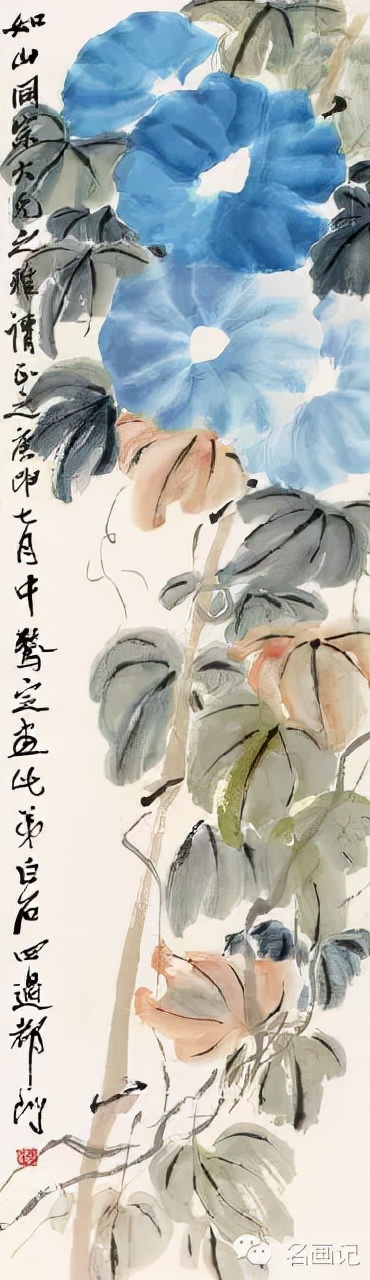 如山同宗大兄之雅请正之庚申七月中惊定画此弟白石四过都门
名画记